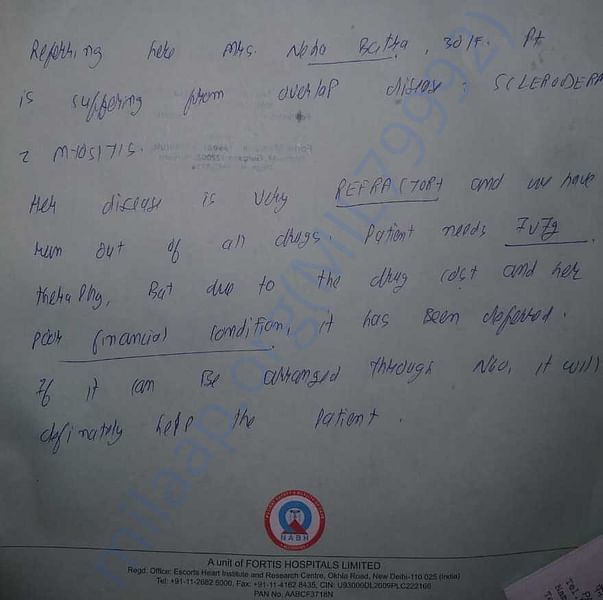 Referring here Mrs. Neha Batra, 30/F. Pt
is suffering from overlap disease: SCLERODERMA
MYOSITIS.
Her disease is very REFRACTORY and we have
run out of all drugs. Patient needs IVIg
therapy, But due to the drug cost and her
poor financial condition, it has Been deferred.
If it can Be arranged through NGO, it will
definately help the patient.
milaap.org(MIL79992)
NABH
A unit of FORTIS HOSPITALS LIMITED
Regd. Office: Escorts Heart Institute and Research Centre, Okhla Road, New Delhi-110 025 (India)
Tel: +91-11-2682 5000, Fax: +91-11-4162 8435, CIN: U93000DL2009PLC222166
PAN No. AABCF3718N